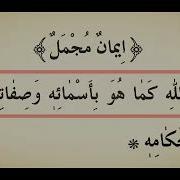 ﴿ اِيمَانٌ مُجْمَلٌ ﴾
للهِ كَمَا هُوَ بِأَسْمَائِهٖ وَصِفَاتِ
حْكَامِهٖ *